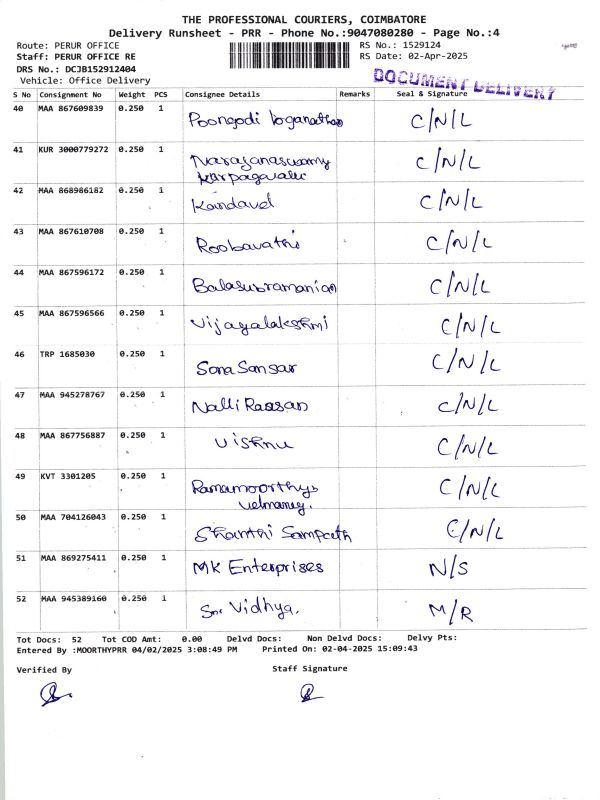 THE PROFESSIONAL COURIERS, COIMBATORE
Delivery Runsheet - PRR - Phone No.:9047080280 - Page No.:4
Route: PERUR OFFICE
Staff: PERUR OFFICE RE
DRS No.: DCJB152912404
Vehicle: Office Delivery
RS No.: 1529124
RS Date: 02-Apr-2025
DOCUMENT DELIVERY
S No Consignment No Weight PCS Consignee Details Remarks Seal & Signature
40 MAA 867609839 0.250 1 Poongodi loganathan C/N/L
41 KUR 3000779272 0.250 1 Narayanaswamy C/N/L
Karpagavalli
42 MAA 868986182 0.250 1 Kandavel C/N/L
43 MAA 867610708 0.250 1 Roobavathi C/N/L
44 MAA 867596172 0.250 1 Balasubramanian C/N/L
45 MAA 867596566 0.250 1 Vijayalakshmi C/N/L
46 TRP 1685030 0.250 1 Sona Sansar C/N/L
47 MAA 945278767 0.250 1 Nalli Raasan C/N/L
48 MAA 867756887 0.250 1 Vishnu C/N/L
49 KVT 3301205 0.250 1 Ramamoorthys C/N/L
velmurug.
50 MAA 704126043 0.250 1 Shanthi Sampath C/N/L
51 MAA 869275411 0.250 1 MK Enterprises N/S
52 MAA 945389160 0.250 1 Sri Vidhya. M/R
Tot Docs: 52 Tot COD Amt: 0.00 Delvd Docs: Non Delvd Docs: Delvy Pts:
Entered By :MOORTHYPRR 04/02/2025 3:08:49 PM Printed On: 02-04-2025 15:09:43
Verified By
Staff Signature